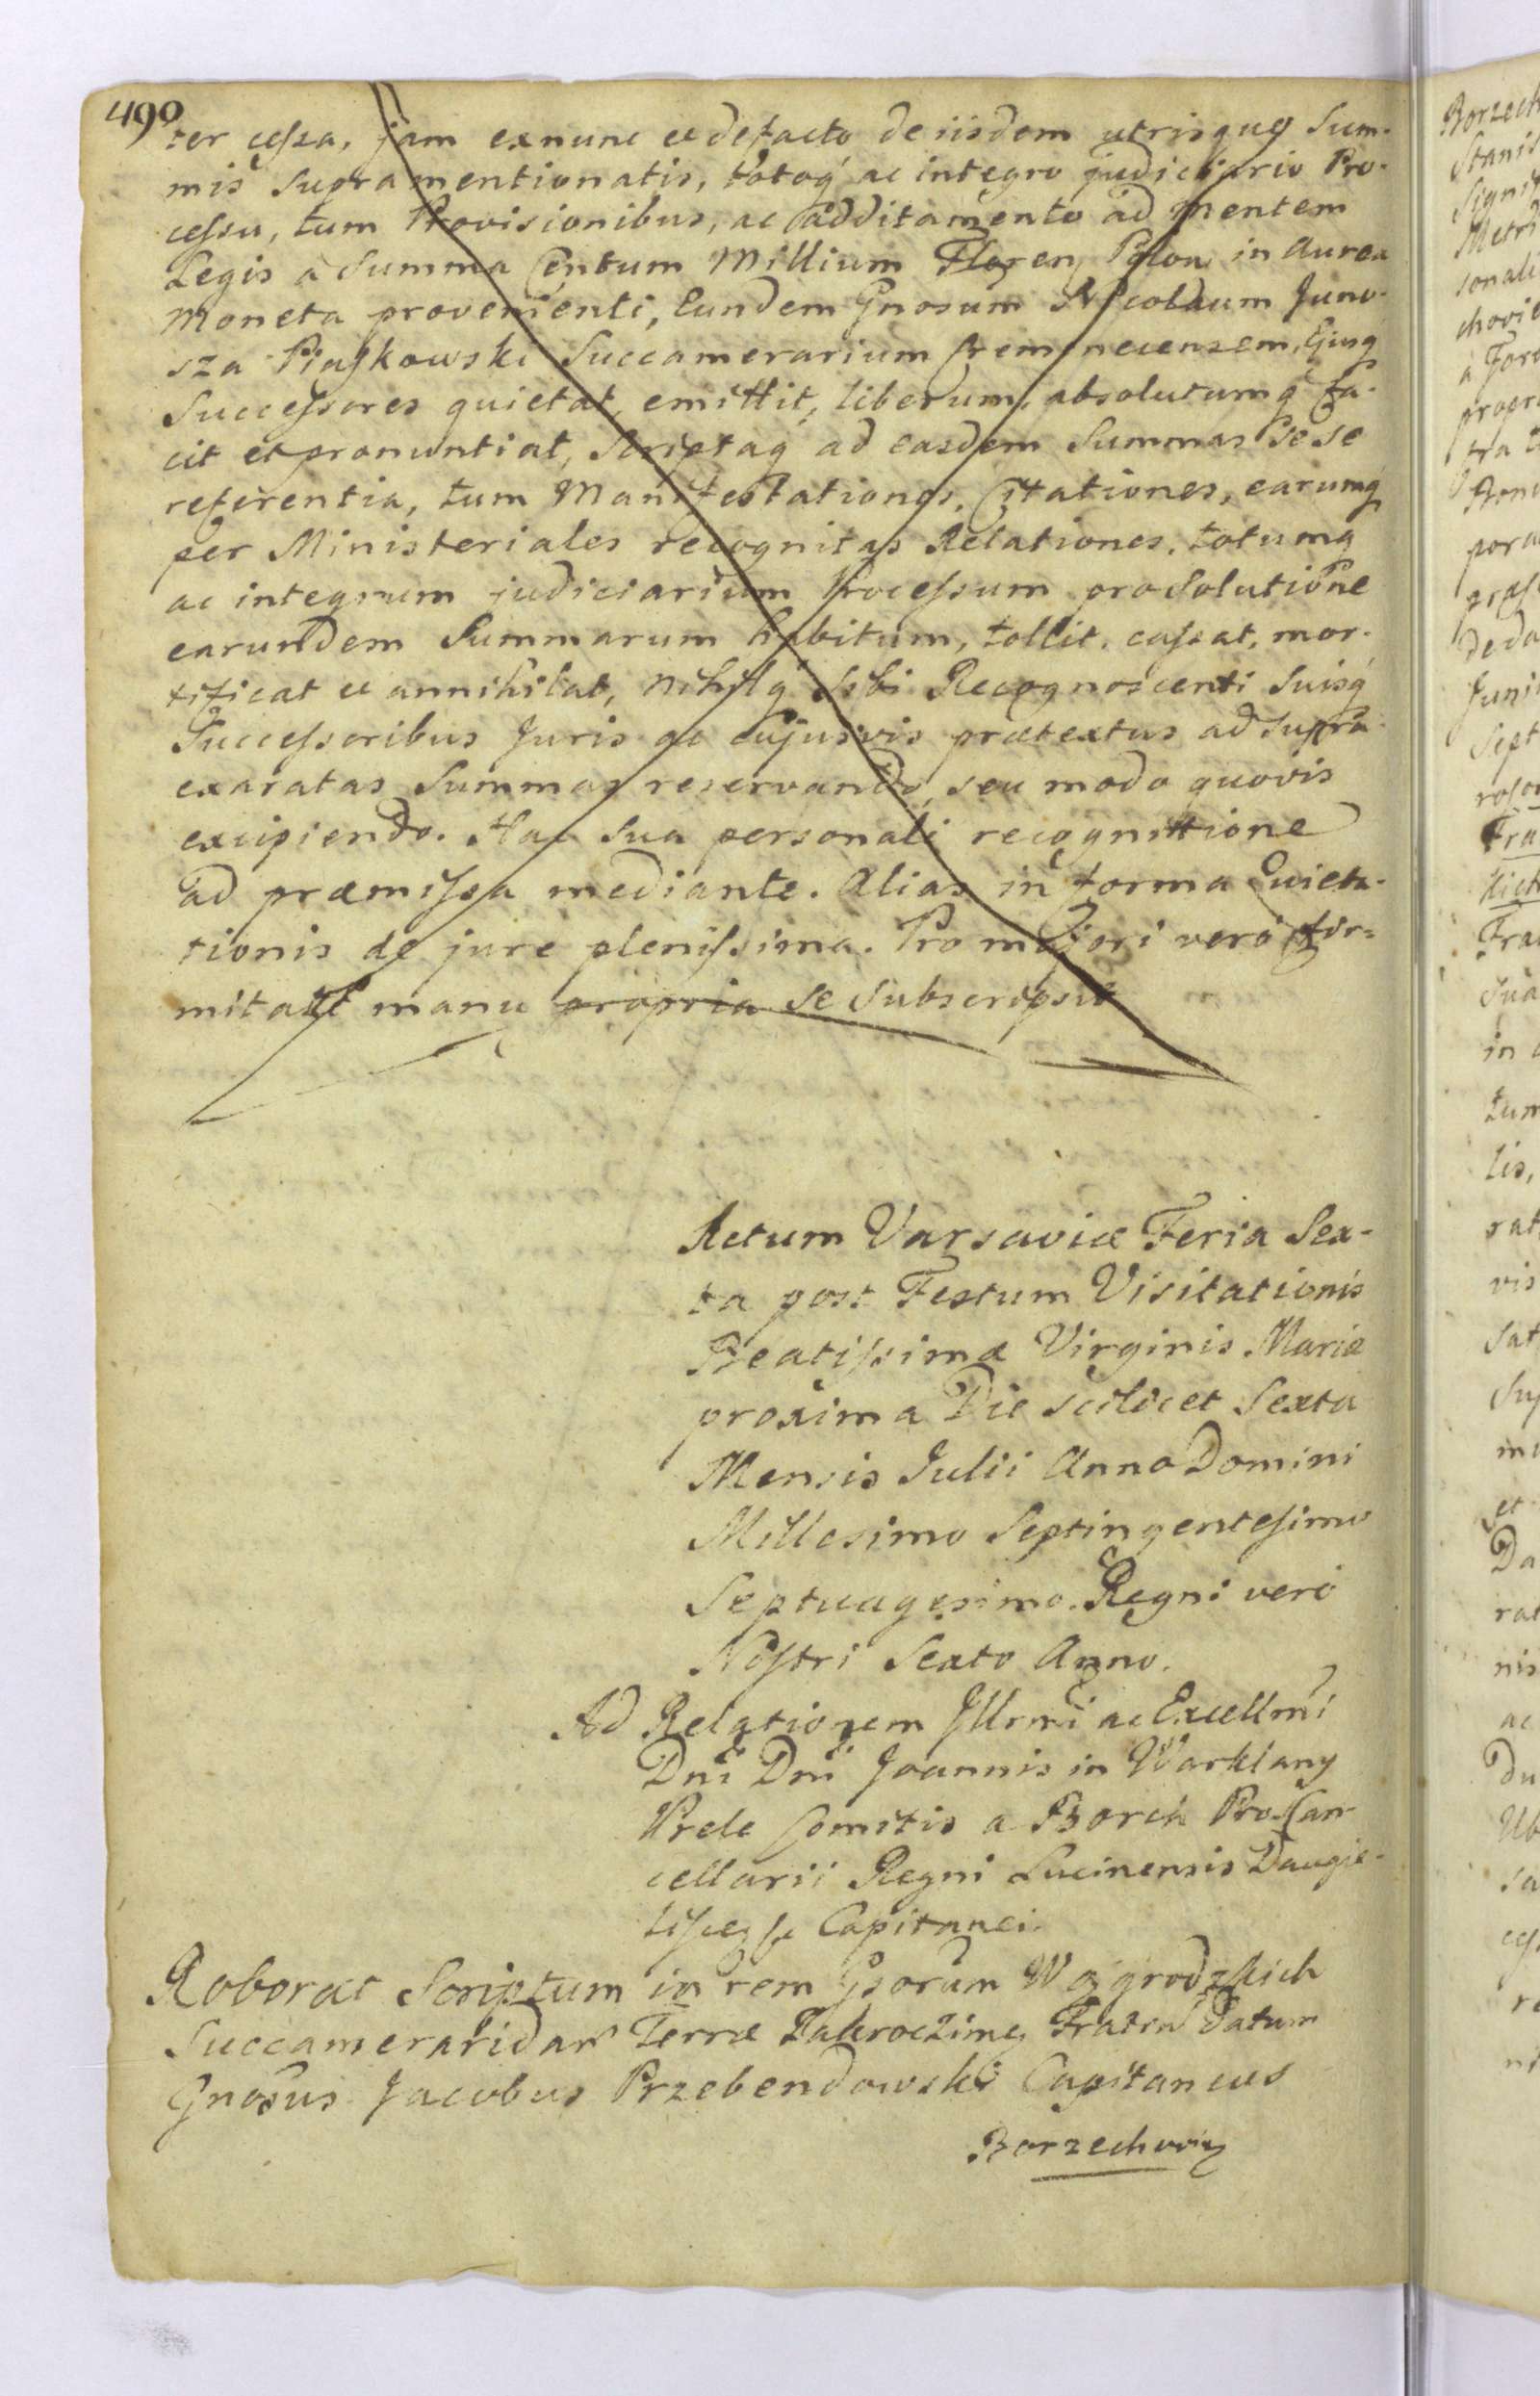 490
ter cessa, jam exnunc et defacto de iisdem utrisque Sum-
mis supra mentionatis, totoq́ ac integro judiciario Pro-
cessu, tum Provisionibus, ac additamento ad mentem
Legis a Summa Centum Millium Floren Polon in Aurea
Moneta provenienti, Eundem Gnosum Nicolaum Juno-
sza Piaskowski Succamerarium Cremenecensem, Ejusq
Successores quietat, emittit, liberum, absolutumq́ fa-
cit et pronuntiat, Scriptaq́ ad easdem Summas Se se
referentia, tum Manifestationes, Citationes, earumq́
per Ministeriales recognitas Relationes, totumq
ac integrum judiciarium Processum pro Solutione
earundem Summarum habitum, tollit, cassat, mor-
tificat et annihilat, Nihilq́ Sibi Recognoscenti Suisq́
Successoribus Juris ac cujusvis prætextus ad Supra-
exaratas Summas reservando, seu modo quovis
excipiendo. Hac Sua personali recognittione
ad præmissa mediante. Alias in forma Quieta-
tionis de jure plenissima. Pro majori vero fir=
mitate manu propria se Subscripsit
Actum Varsaviæ Feria Sex-
ta post Festum Visitationis
Beatissimæ Virginis Mariæ
proxima Die scilicet Sexta
Mensis Julii Anno Domini
Millesimo Septingentesimo
Septuagesimo. Regni vero
Nostri Sexto Anno.
Ad Relationem Illrmi ac Excellmi
Dni Dni Joannis in Warklany
Prele Comitis a Borch Pro-Can-
cellarii Regni Lucinensis
Capitanei.
Roborat Scriptum in rem Gsorum Wojgrodzkich
Succameraridar Terræ Zakroczimen Fratrū Datum
Gnosus Jacobus Przebendowski Capitaneus
Borzechovien
Borzech
Stanis
Signi
Metri
sonali
chovie
propr
tra
Bon
por
Juni
Sept
Fra
Fra
Sua
in
tum
lis,
rat
vis
Sat
Sup
et
Da
rat
nis
ac
Du
Ub
sa